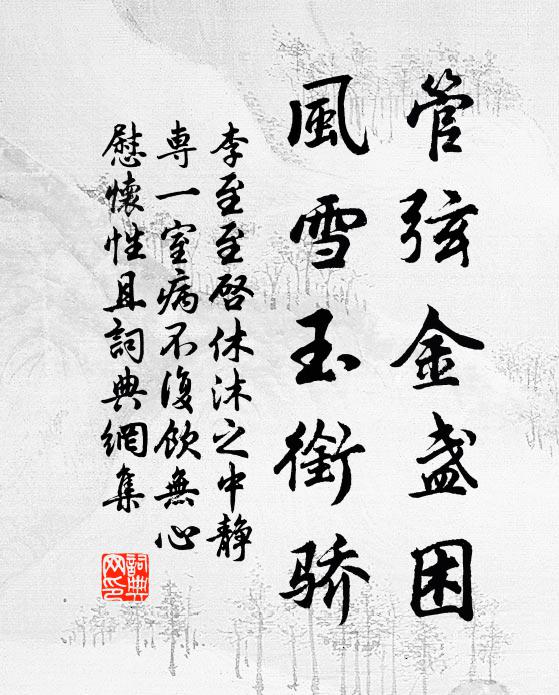 管弦金盏困
風雪玉銜骄
李至至啓休沐之中静
専一室病不復飲無心
慰懷性且詞典網集
詞典
网印